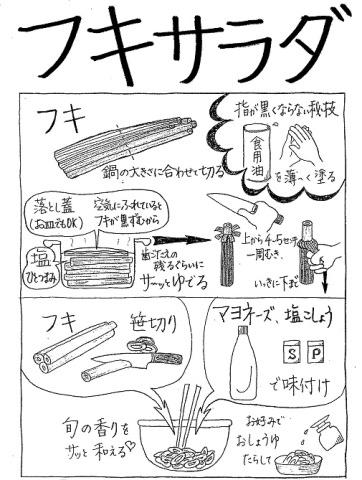 フキサラダ
フキ
鍋の大きさに合わせて切る
指が黒くならない秘技
食用油
を薄〜く塗る
落とし蓋
(お皿でもOK)
空気にふれていると
フキが黒ずむから
塩
ひとつまみ
歯ごたえの
残るぐらいに
サ〜ッとゆでる
上から4〜5センチ
一周むき、
いっきに下まで
フキ
笹切り
マヨネーズ、塩こしょう
S P
で味付け
旬の香りを
サッと和える♡
お好みで
おしょうゆ
たらして